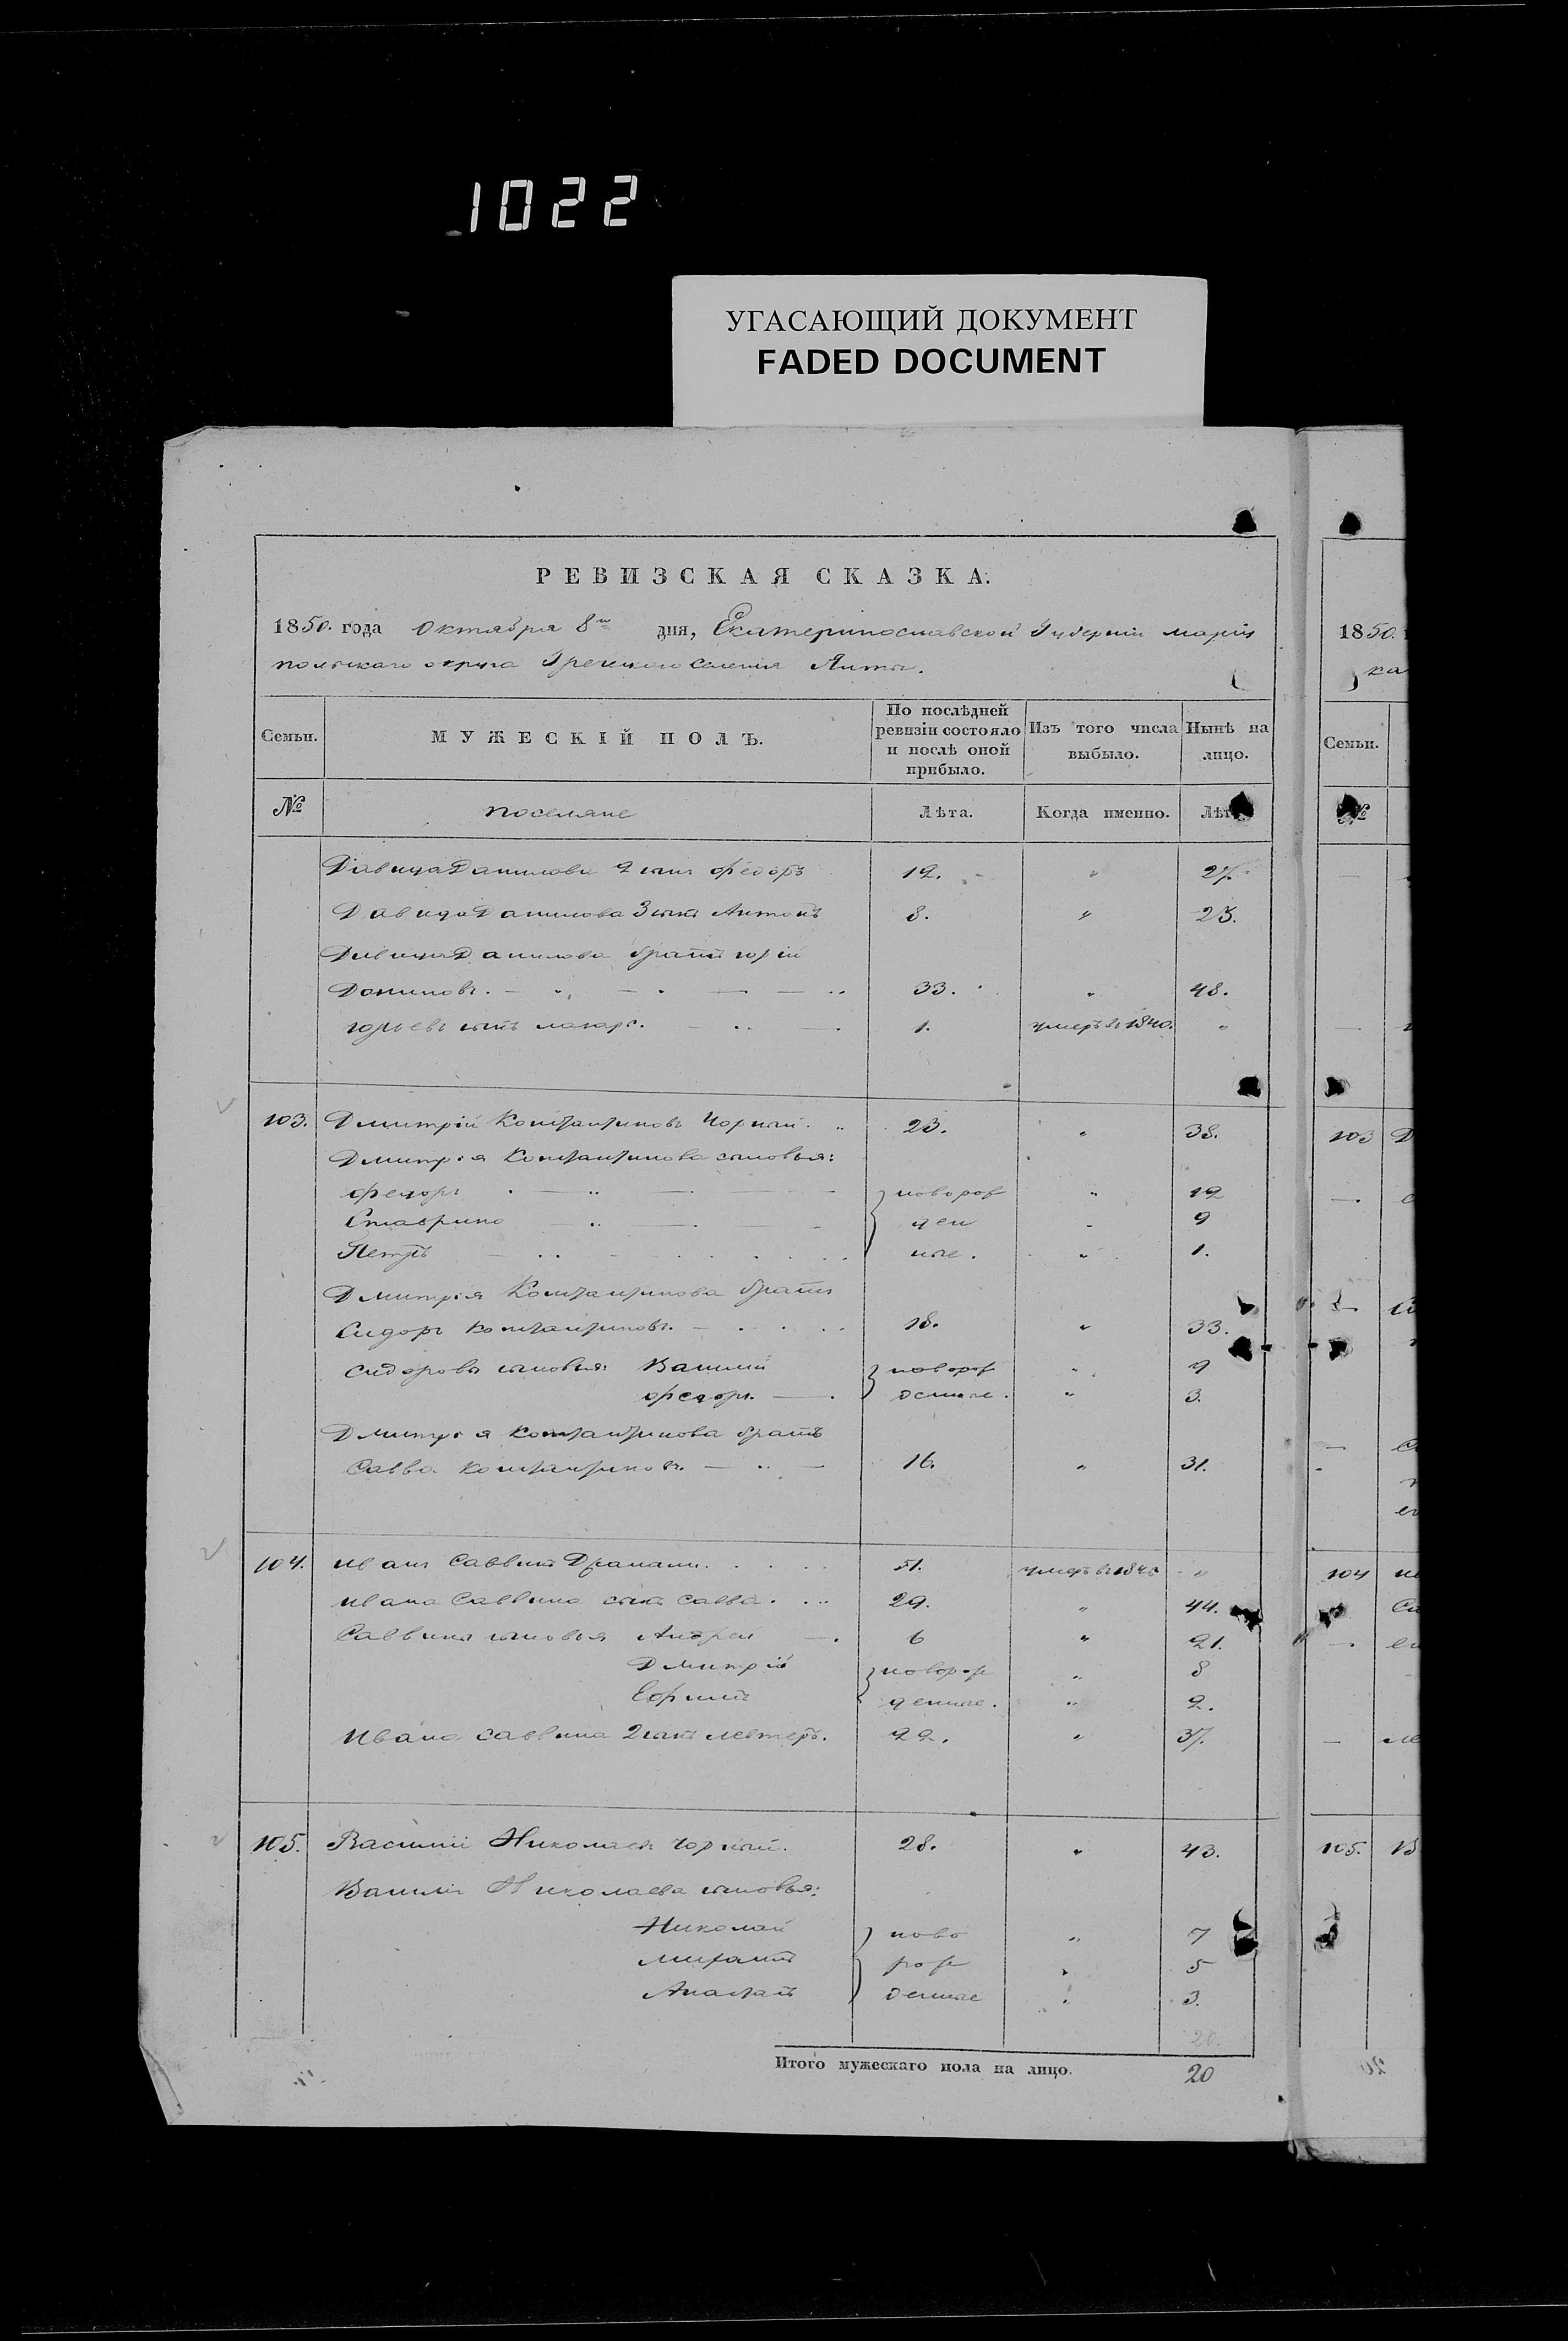 1022
УГАСАЮЩИЙ ДОКУМЕНТ
FADED DOCUMENT
РЕВИЗСКАЯ СКАЗКА.
1850. года Октября 8го дня, Екатеринославской Губерніи маріу
польскаго округа Греческаго Селенія Ялты.
Семьи. МУЖЕСКІЙ ПОЛЪ. По послѣдней ревизіи состояло и послѣ оной прибыло. Изъ того числа выбыло. Нынѣ на лицо.
№ поселяне Лѣта. Когда именно. Лѣта
Давида Данилова 2 сынъ федоръ 12. " 27.
Давида Данилова 3 сынъ Антонъ 8. " 23.
Давида Данилова братъ юрій
Даниловъ. 33. " 48.
юрьевъ сынъ лазарь. 1. умеръ въ 1840. "
103. Дмитрій Константиновъ Чорный. 23. " 38.
Дмитрія Константинова сыновья:
федоръ } новорож " 12
Ставрино ден " 9
Петръ ные. " 1.
Дмитрія Константинова братъ
Сидоръ Константиновъ. 18. " 33.
сидоровы сыновья: Василій } новорож " 9
федоръ. денные. " 3.
Дмитрія Константинова братъ
Савва Константиновъ. 16. " 31.
104. иванъ Саввинъ 51. умеръ въ "
ивана Саввина сынъ Савва. 29. " 44.
Саввины сыновья Андрей 6 " 21.
Дмитрій } новорож " 8
денные. " 2.
Ивана Саввина 2 сынъ левтеръ. 22. " 37.
105. Василій Николаевъ Чорный. 28. " 43.
Василія Николаева сыновья:
Николай } ново " 7
михаилъ рож " 5
денные " 3.
20.
Итого мужескаго пола на лицо. 20
1850.
ка
Семьи.
№
103 Д
104 ив
105. В